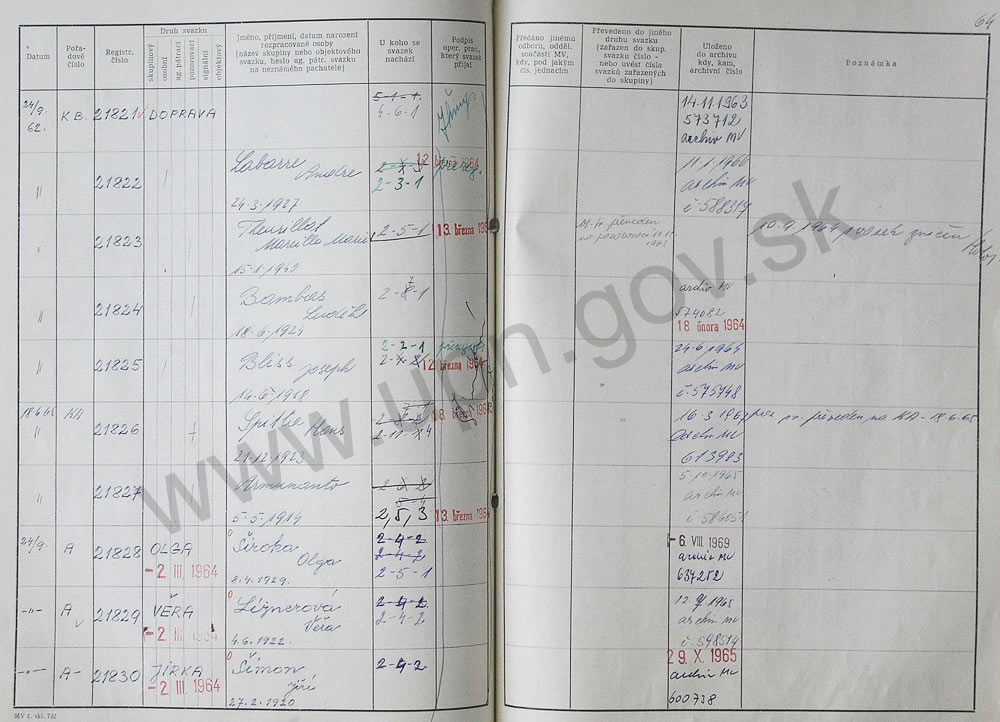 64
Datum
Pořa-
dové
číslo
Registr.
číslo
Druh svazku
skupinový
osobní
ag. pátrací
pozorovací
signální
objektový
Jméno, příjmení, datum narození
rozpracované osoby
(název skupiny nebo objektového
svazku, heslo ag. pátr. svazku
na neznámého pachatele)
U koho se
svazek
nachází
Podpis
oper. prac.,
který svazek
přijal
Předáno jinému
odboru, odděl.
součásti MV,
kdy, pod jakým
čís. jednacím
Převedeno do jiného
druhu svazku
(zařazen do skup.
svazku číslo -
nebo uvést čísla
svazků zařazených
do skupiny)
Uloženo
do archívu
kdy, kam,
archívní číslo
Poznámka
24/9.
62.
K B.
21821
DOPRAVA
5-1-1.
4-6-1
14.11.1963
573712
archiv MV
"
21822
Labarre
Andre
24.3.1927
2-3-1
12. března 1964
11.1.1966
archiv MV
č-588317
"
21823
Mareille Marie
15.1.1940
2-5-1
13. března 1964
"
21824
Bambas
Luděk
18-6-1924
2-8-1
archiv MV
574082
18. února 1964
"
21825
Bliss Joseph
2-2-1
12. března 1964
24.6.1964
archiv MV
č-575748
18.6.65
KA
"
21826
Hans
21.12.1923
18. března 1964
16-3-1967
archiv MV
613983
převeden na KA-18.6.65
"
21827
5-5-1914
2,5,3
13. března 1964
5-10-1965
archiv MV
24/9.
A
21828
OLGA
-2. III. 1964
Široka
Olga
8.4.1929.
2-4-2
2-4-2
2-5-1
-6. VIII. 1969
archiv MV
637252
-"-
A
21829
VĚRA
-2. III. 1964
Ližnerová
Věra
4.6.1922.
2-4-2
2-4-2
archiv MV
č-598514
-"-
A-
21830
JIRKA
-2. III. 1964
Šimon
Jiří
27.2.1920
2-4-2
29. X. 1965
archiv MV
600738
MV č. skl. 732
www.upn.gov.sk